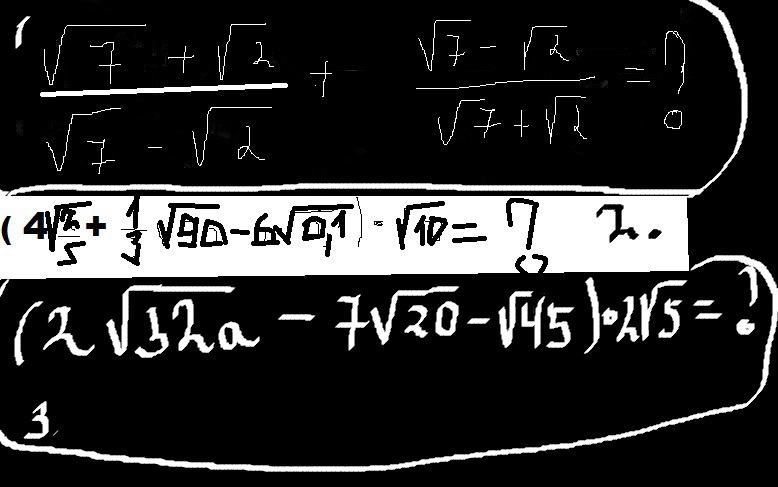 1 (√7 + √2)/(√7 - √2) + (√7 - √2)/(√7 + √2) = ?
(4√(2/5) + 1/3 √90 - 6√0,1) · √10 = ? 2.
(2√32a - 7√20 - √45) · 2√5 = ?
3.